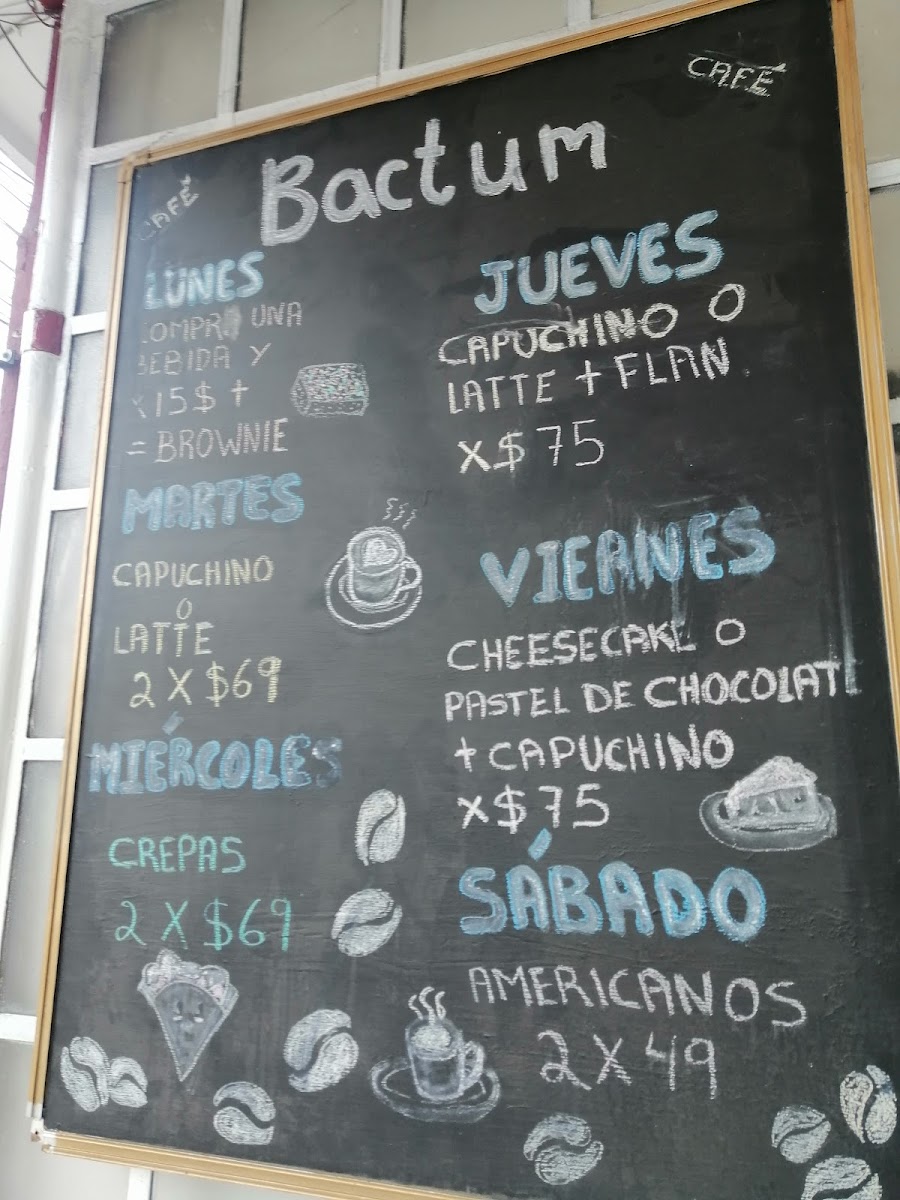 CAFÉ
CAFÉ
Bactum
LUNES
COMPRA UNA
BEBIDA Y
X15$ +
= BROWNIE
MARTES
CAPUCHINO
O
LATTE
2 X $69
MIÉRCOLES
CREPAS
2 X $69
JUEVES
CAPUCHINO O
LATTE + FLAN.
X $75
VIERNES
CHEESECAKE O
PASTEL DE CHOCOLATE
+ CAPUCHINO
X $75
SÁBADO
AMERICANOS
2 X 49